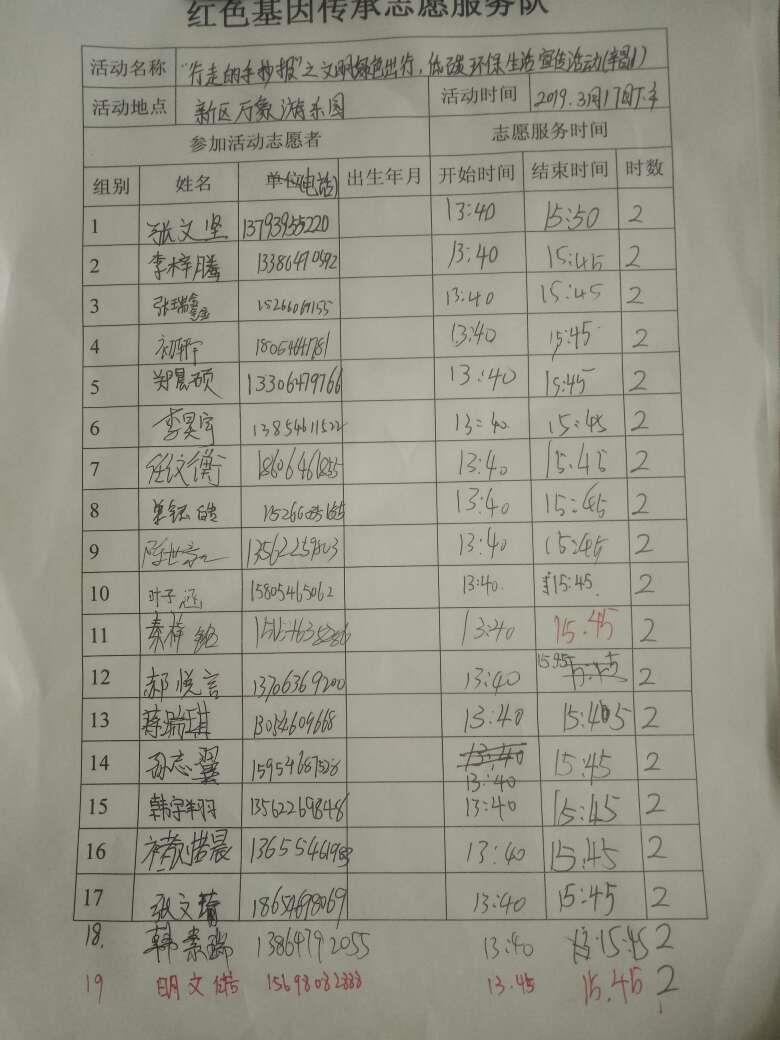 红色基因传承志愿服务队
活动名称 "行走的手抄报"之文明绿色出行，低碳环保生活宣传活动
活动地点 新区万象游乐园 活动时间 2019.3月17日下午
参加活动志愿者 志愿服务时间
组别 姓名 单位(电话) 出生年月 开始时间 结束时间 时数
1 张文坚 13793955220 13:40 15:50 2
2 李梓腾 13:40 15:45 2
3 张瑞鑫 15266069155 13:40 15:45 2
4 初轩宇 13:40 15:45 2
5 郑晨硕 13306479766 13:40 15:45 2
6 李昊宇 13854611522 13:40 15:45 2
7 任文衡 13:40 15:45 2
8 13:40 15:45 2
9 13562259803 13:40 15:45 2
10 叶子涵 15805465062 13:40. 15:45. 2
11 秦梓铭 13:40 15.45 2
12 郝悦言 13706369200 13:40 2
13 蒋瑞琪 13054609668 13:40 15:45 2
14 孙志翼 13:40 13:40 15:45 2
15 韩宇翔 13562269848 13:40 15:45 2
16 13:40 15.45 2
17 张文蕾 18654698069 13:40 15:45 2
18. 韩素瑞 13864792055 13:40 15:45 2
19 明文偌 15698082888 13.45 15.45 2